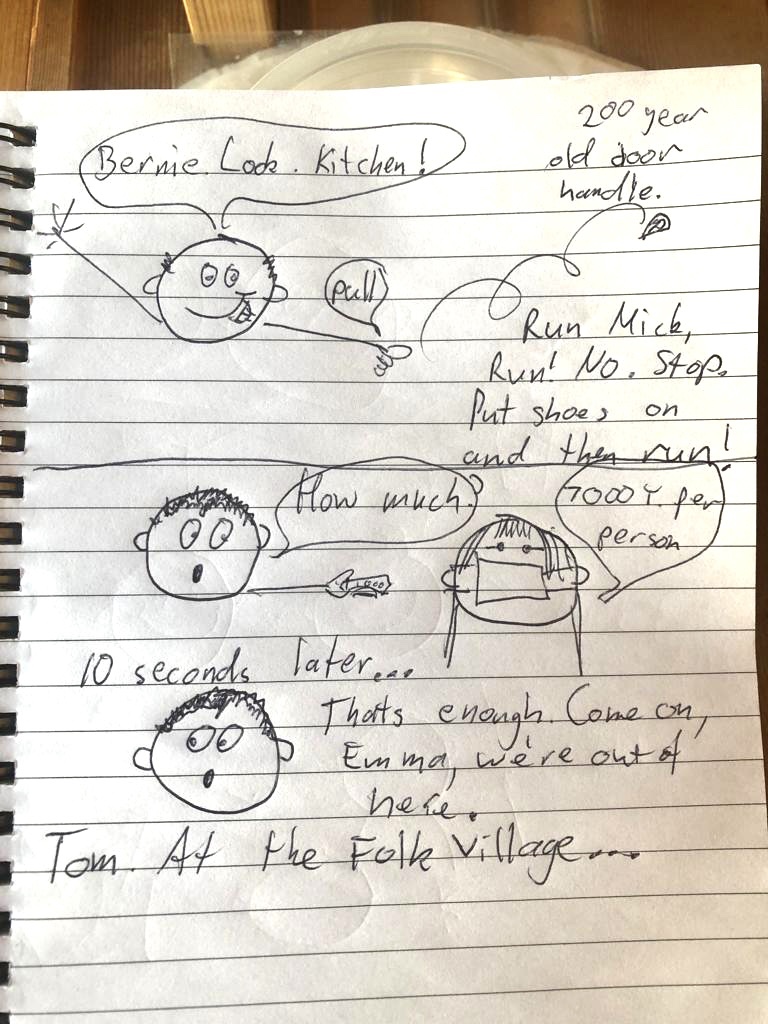 200 year
old door
handle.
Bernie. Look. Kitchen!
pull
Run Mick,
Run! No. Stop.
Put shoes on
and then run!
How much?
7000Y. per
person
10 seconds later...
Thats enough. Come on,
Emma, we're out of
here.
Tom. At the Folk Village...